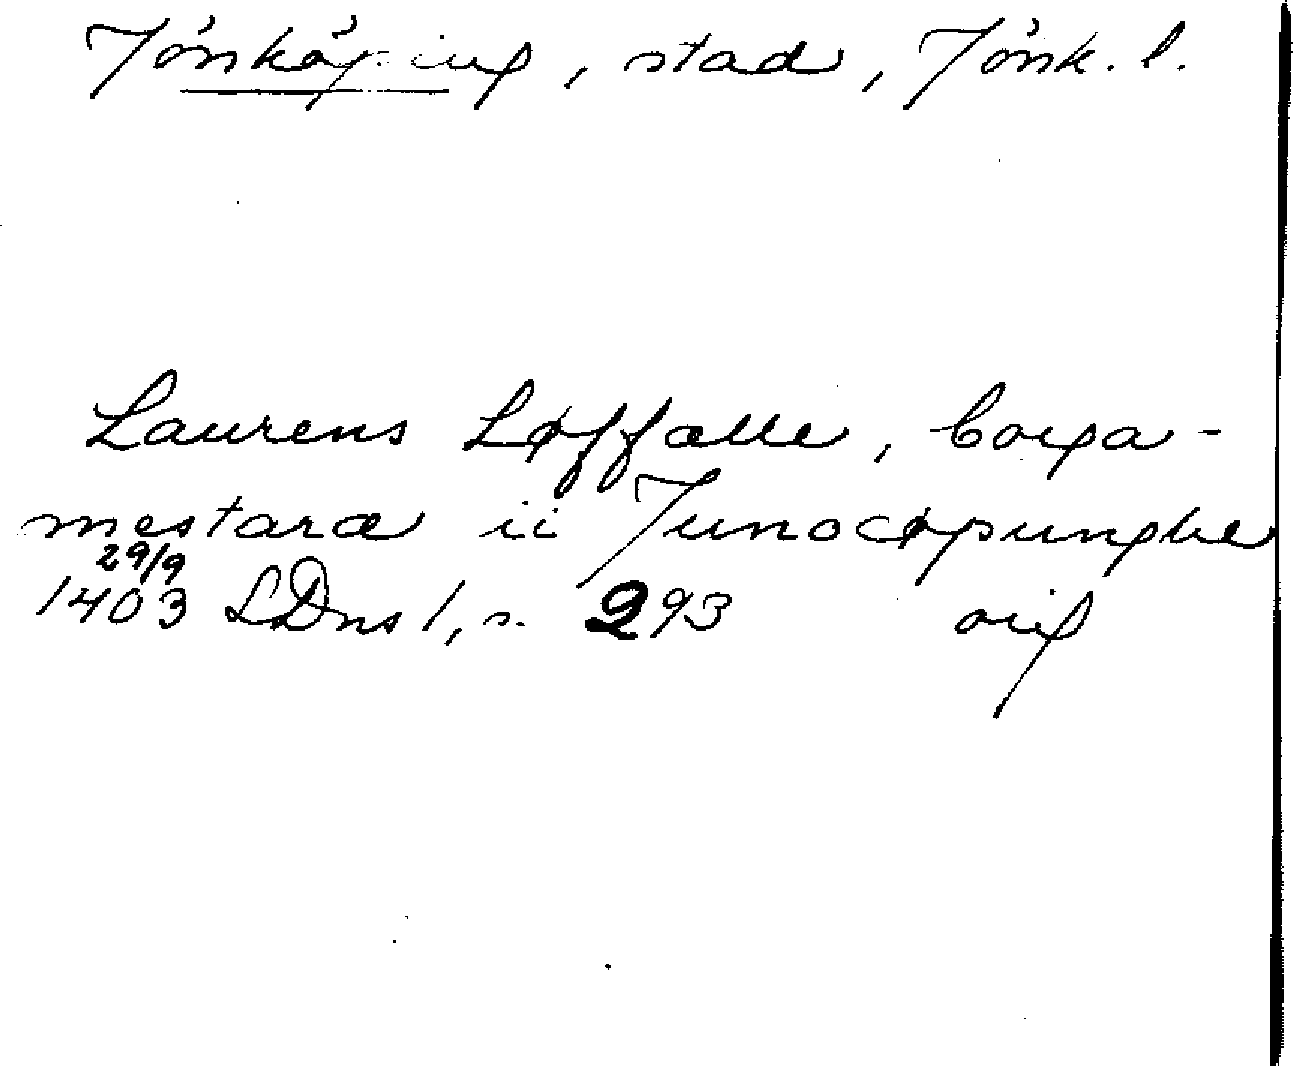 Jönköping, stad, Jönk. l.
Laurens Løffælle, borga-
mestaræ ii Junocøpunghe
29/9
1403 SDns 1, s. 293 orig